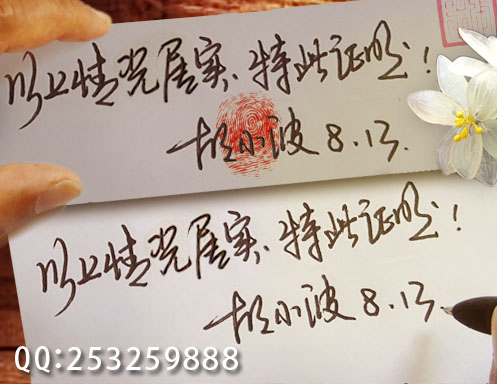 以上情况属实、特此证明！
胡小波 8.13.
以上情况属实、特此证明！
胡小波 8.13.
QQ:253259888